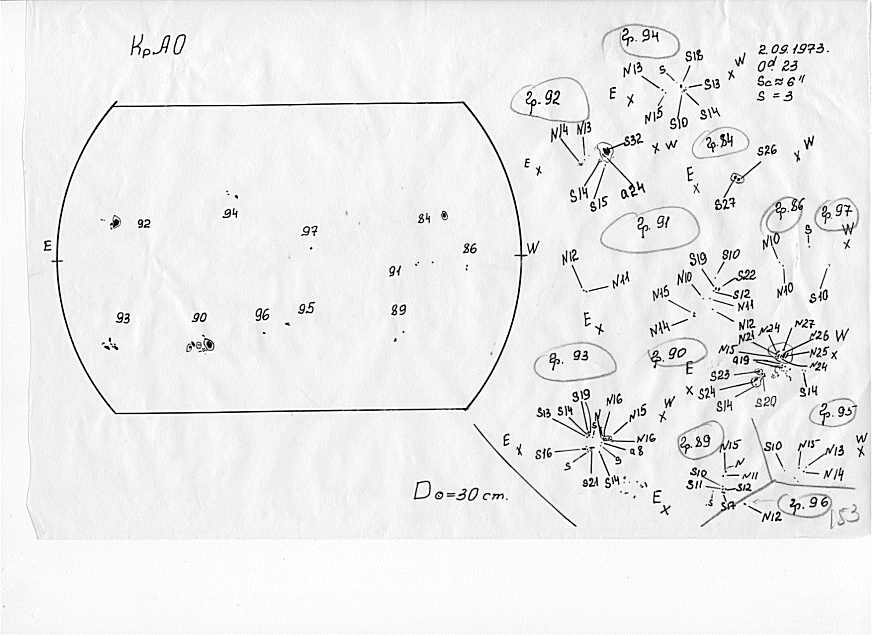 КрАО
E
W
92
94
97
84
86
91
93
90
96
95
89
D⊙=30 cm.
2.09.1973.
0ᵈ 23
Sc≈6"
S = 3
гр. 94
N13
S
S18
W
X
S13
E
X
N15
S10
S14
гр. 92
N14
N13
S32
X
W
E
X
S14
S15
a24
гр. 84
S26
X
W
E
X
S27
гр. 91
N12
N11
E
X
S19
S10
N10
S22
S12
N15
N11
N14
N12
гр. 86
N10
N10
гр. 97
S
W
X
S10
гр. 93
S19
S13
S14
N
N16
N15
W
X
S
E
X
S16
N16
a8
S
S
S21
S14
E
X
гр. 90
N21
N24
N27
N26
W
N15
N25
X
a19
N24
E
X
S23
S24
S14
S20
S14
гр. 89
N15
N
N11
S10
S11
S12
S
S17
гр. 95
S10
N15
N13
W
X
N14
гр. 96
N12
153